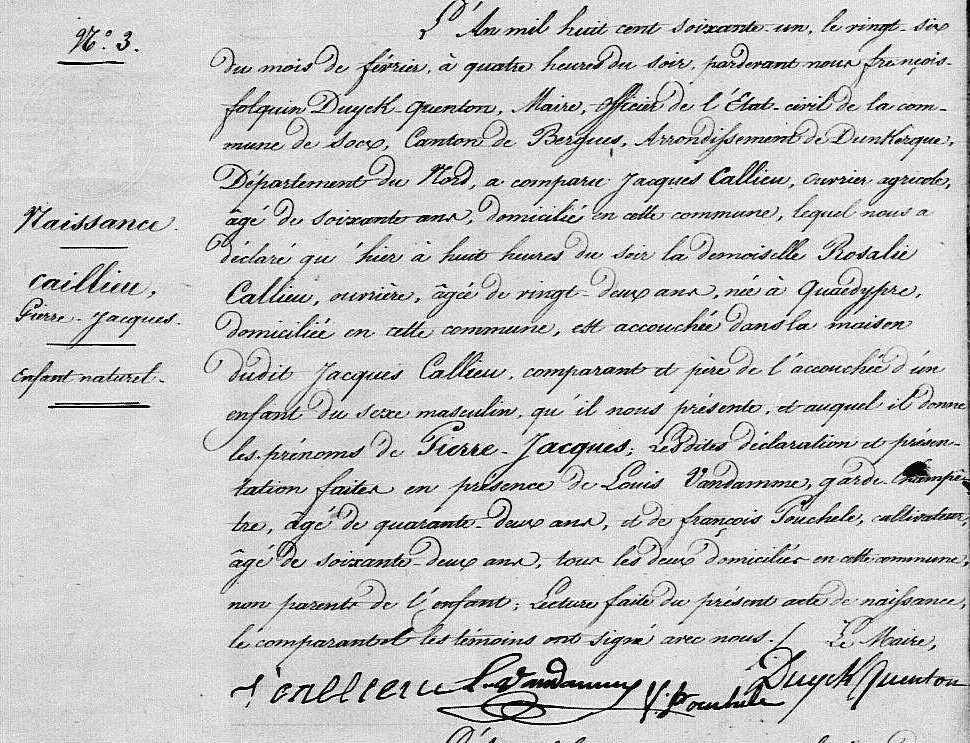 N.o 3.
Naissance.
Caillieu,
Pierre-Jacques.
Enfant naturel.
L'An mil huit cent soixante-un, le vingt-six
du mois de février, à quatre heures du soir, pardevant nous françois-
folquin Duyck-Quenton, Maire, officier de l'Etat-civil de la com-
mune de Socx, Canton de Bergues, Arrondissement de Dunkerque,
Département du Nord, a comparu Jacques Callieu, ouvrier agricole,
âgé de soixante ans, domicilié en cette commune, lequel nous a
déclaré qu'hier à huit heures du soir la demoiselle Rosalie
Callieu, ouvrière, âgée de vingt-deux ans, née à Quaëdypre,
domiciliée en cette commune, est accouchée dans la maison
dudit Jacques Callieu, comparant et père de l'accouchée d'un
enfant du sexe masculin, qu'il nous présente, et auquel il donne
les prénoms de Pierre-Jacques; Lesdites déclaration et présen-
tation faites en présence de Louis Vandamme, garde-champê-
tre, âgé de quarante-deux ans, et de françois Pouchele, cultivateur,
âgé de soixante-deux ans, tous les deux domiciliés en cette commune,
non parents de l'enfant; Lecture faite du présent acte de naissance,
le comparant et les témoins ont signé avec nous./ Le Maire,
L. Vandamme
Pouchele
Duyck Quenton